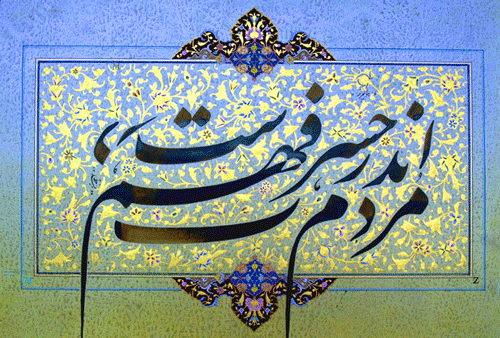 مردم اندر حسرت فهم درست